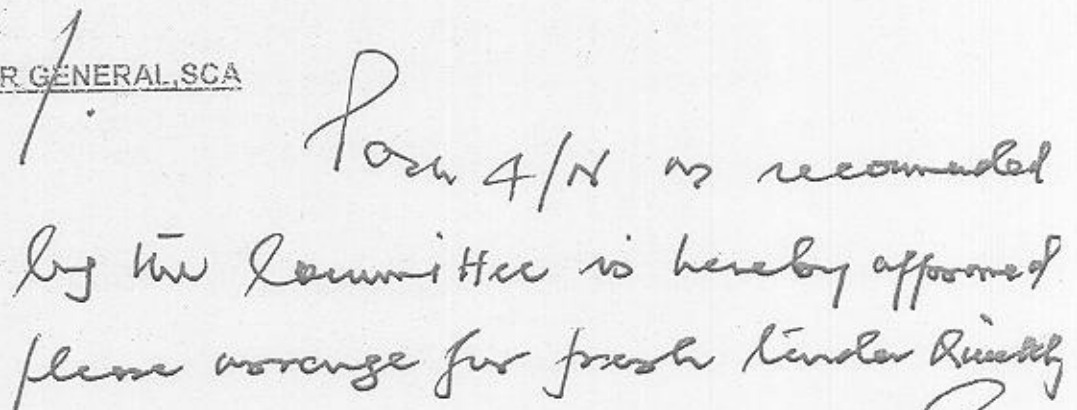 R GENERAL,SCA
Para 4/N as recommended
by the Committee is hereby approved
please arrange for fresh tender Quickly